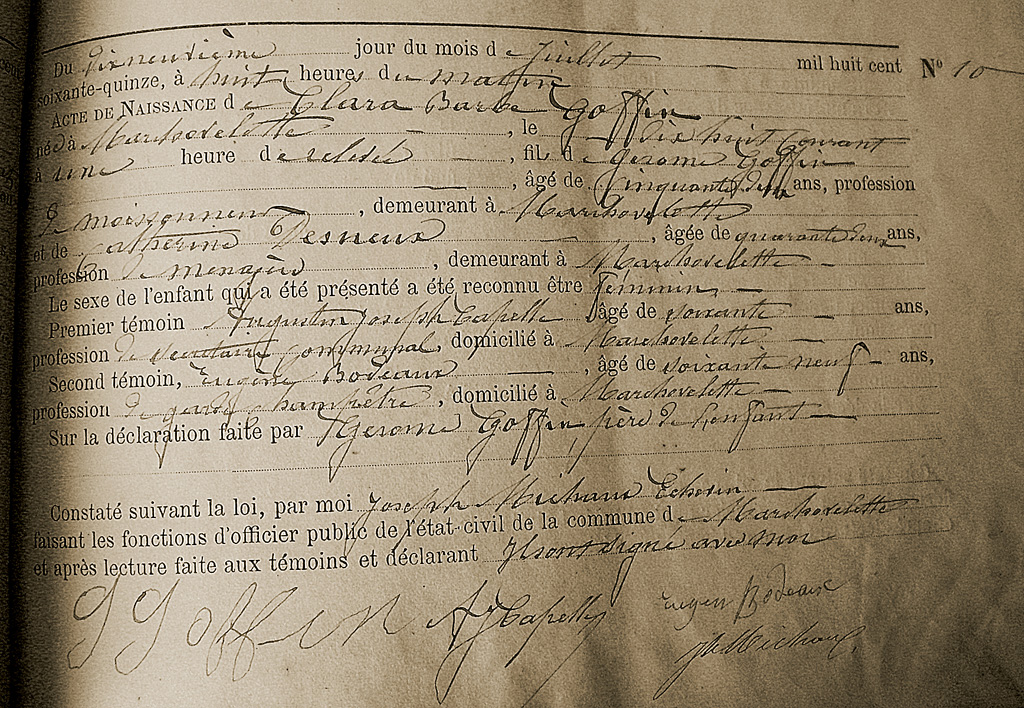 Du dixneuvième jour du mois de Juillet mil huit cent Nº 10
soixante-quinze, à huit heures du matin
ACTE DE NAISSANCE de Clara Barbe Goffin
née à Marchovelette, le dix huit Courant
à une heure de relevée, fil de Gerome Goffin
, âgé de Cinquante deux ans, profession
de moissonneur, demeurant à Marchovelette
et de Catherine Desneux, âgée de quarante deux ans,
profession de menagère, demeurant à Marchovelette
Le sexe de l'enfant qui a été présenté a été reconnu être féminin
Premier témoin Augustin Joseph Capelle âgé de soixante ans,
profession de secrétaire communal, domicilié à Marchovelette
Second témoin, Eugène Bodeaux, âgé de soixante neuf ans,
profession de garde champêtre, domicilié à Marchovelette
Sur la déclaration faite par Gerome Goffin, père de l'enfant
Constaté suivant la loi, par moi Joseph Michaux Echevin
faisant les fonctions d'officier public de l'état-civil de la commune de Marchovelette
et après lecture faite aux témoins et déclarant Ils ont signé avec moi
Goffin AJ Capelle Eugen Bodeaux
Jh Michaux